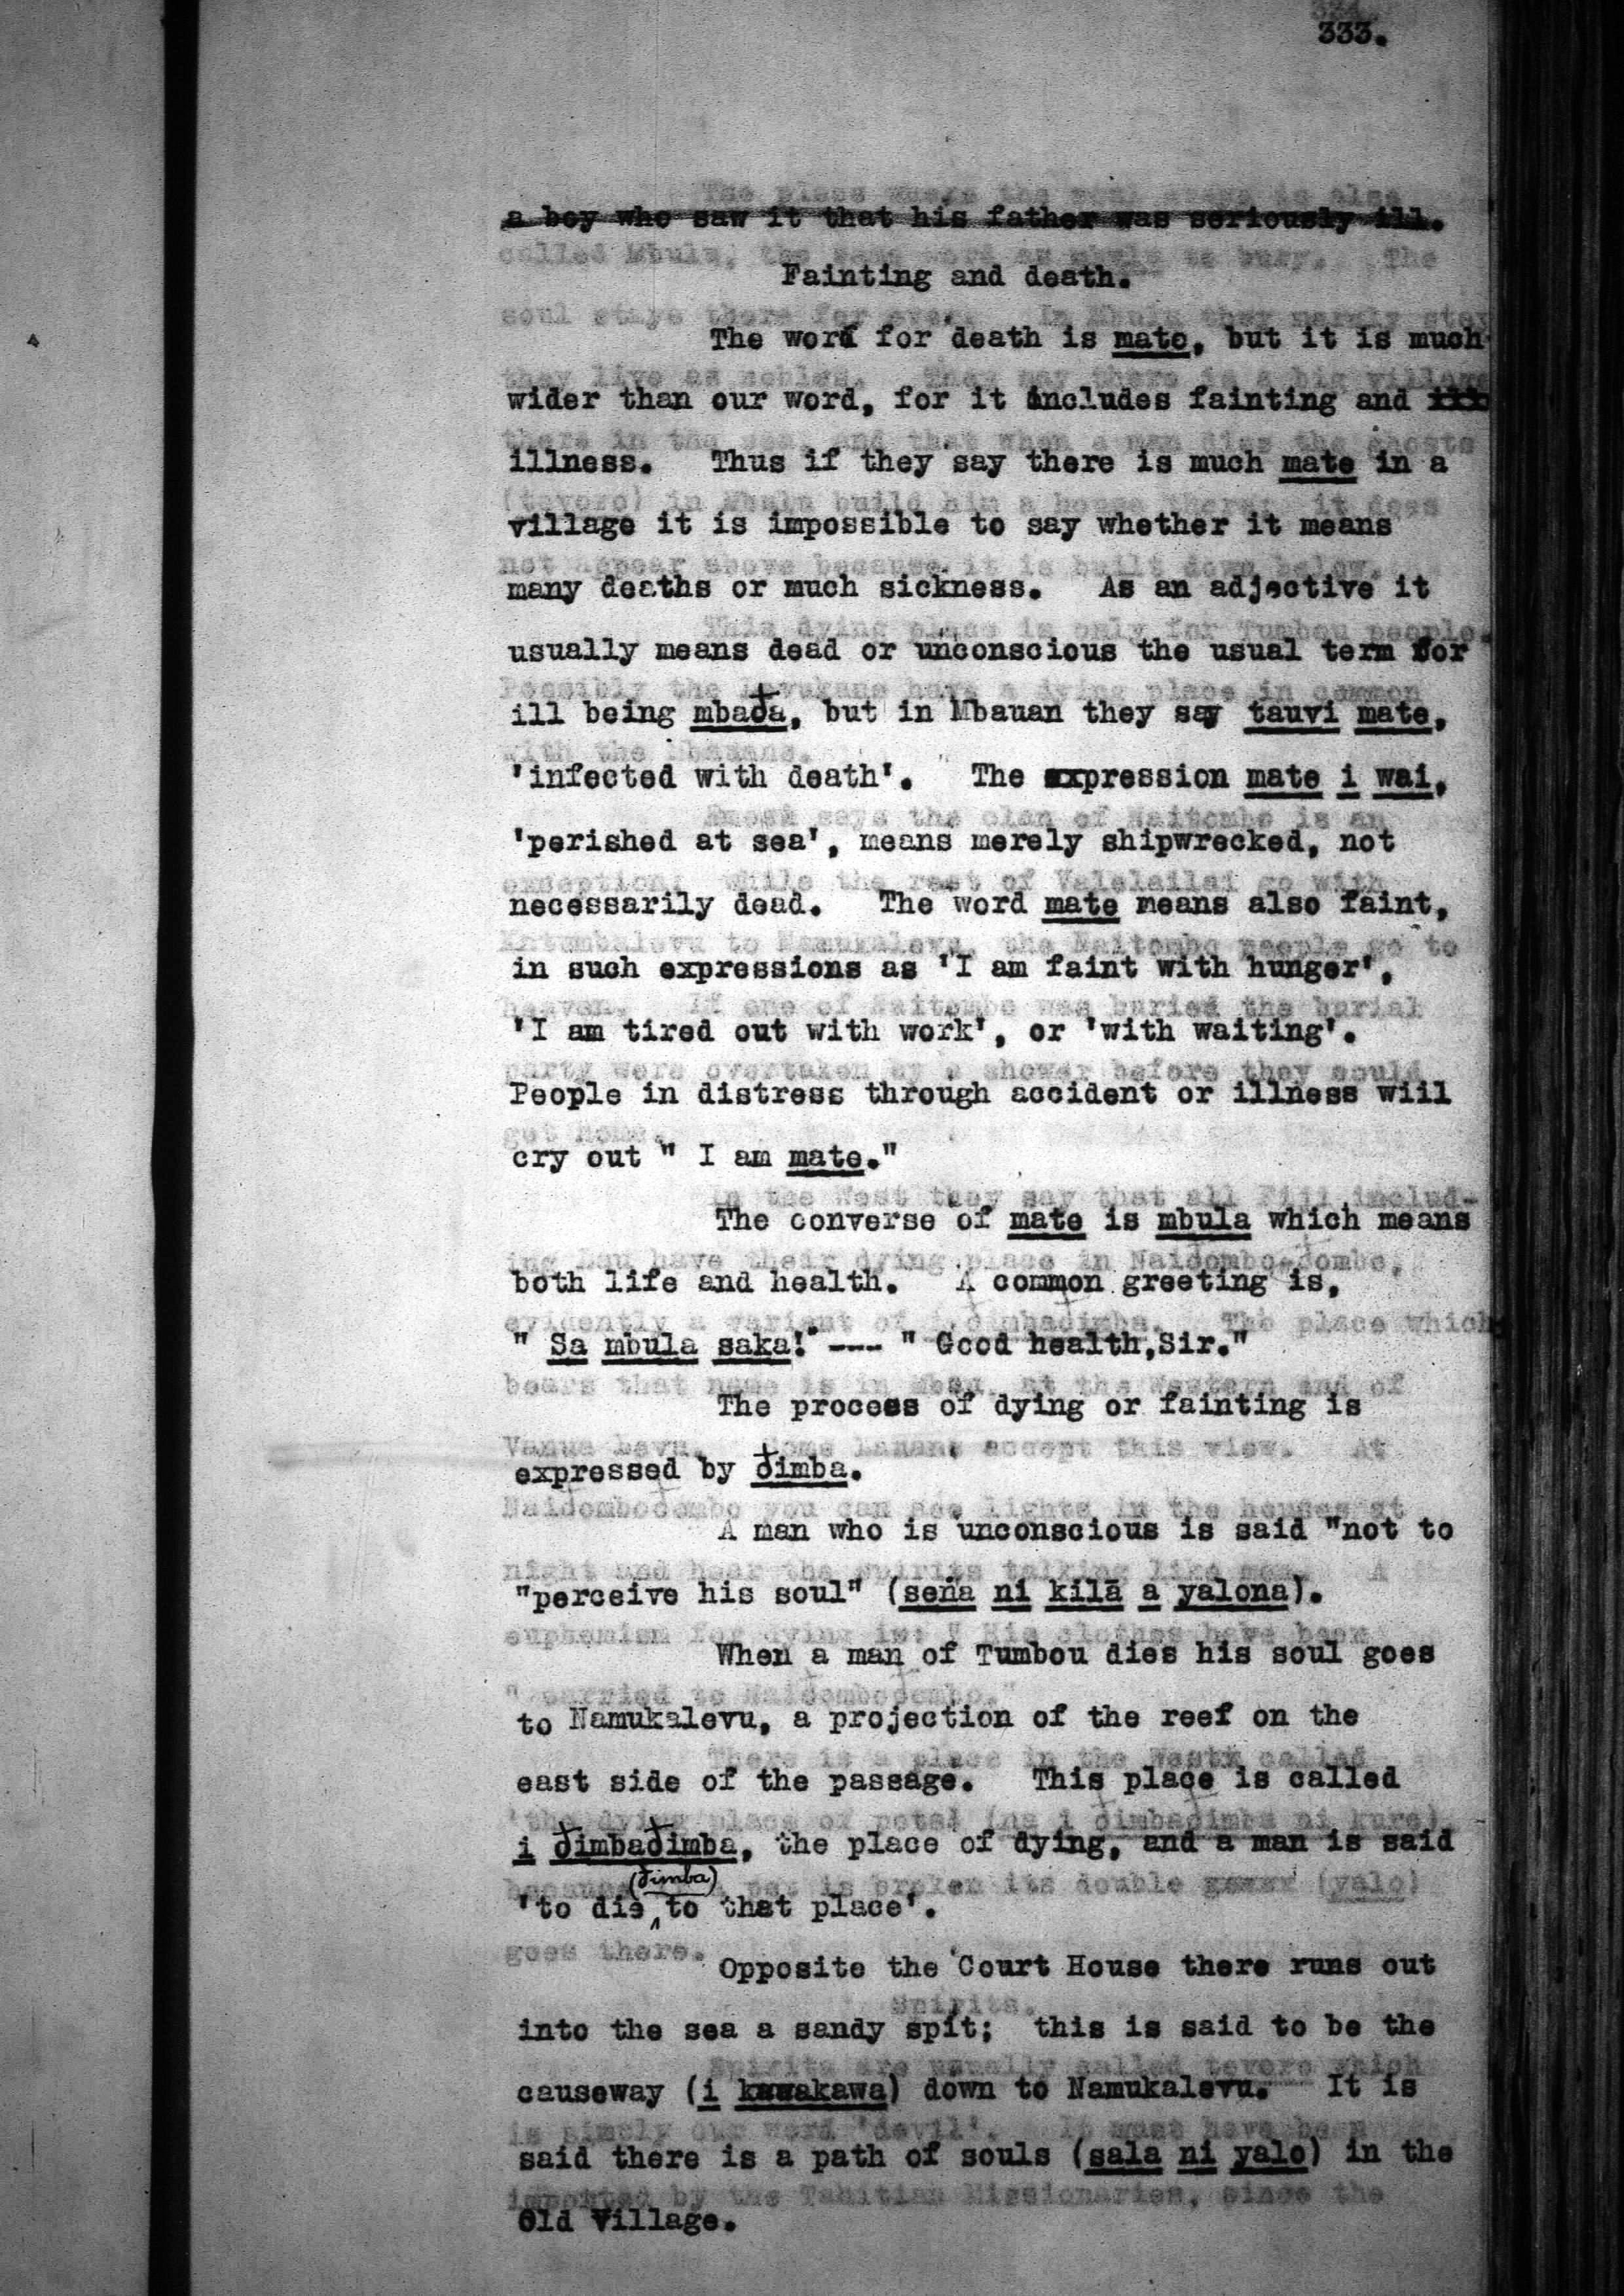 333.
a boy who saw it that his father was seriously ill.
Fainting and death.
The word for death is mate, but it is much
wider than our word, for it includes fainting and
illness. Thus if they say there is much mate in a
village it is impossible to say whether it means
many deaths or much sickness. As an adjective it
usually means dead or unconscious the usual term for
ill being mbađa, but in Mbauan they say tauvi mate,
'infected with death'. The expression mate i wai,
'perished at sea', means merely shipwrecked, not
necessarily dead. The word mate means also faint,
in such expressions as 'I am faint with hunger',
'I am tired out with work', or 'with waiting'.
People in distress through accident or illness wiil
cry out " I am mate."
The converse of mate is mbula which means
both life and health. A common greeting is,
" Sa mbula saka!" --- " Good health,Sir."
The process of dying or fainting is
expressed by đimba.
A man who is unconscious is said "not to
"perceive his soul" (seña ni kilā a yalona).
When a man of Tumbou dies his soul goes
to Namukalevu, a projection of the reef on the
east side of the passage. This place is called
i đimbađimba, the place of dying, and a man is said
(đimba)
'to die to that place'.
Opposite the Court House there runs out
into the sea a sandy spit; this is said to be the
causeway (i kawakawa) down to Namukalevu. It is
said there is a path of souls (sala ni yalo) in the
Old Village.